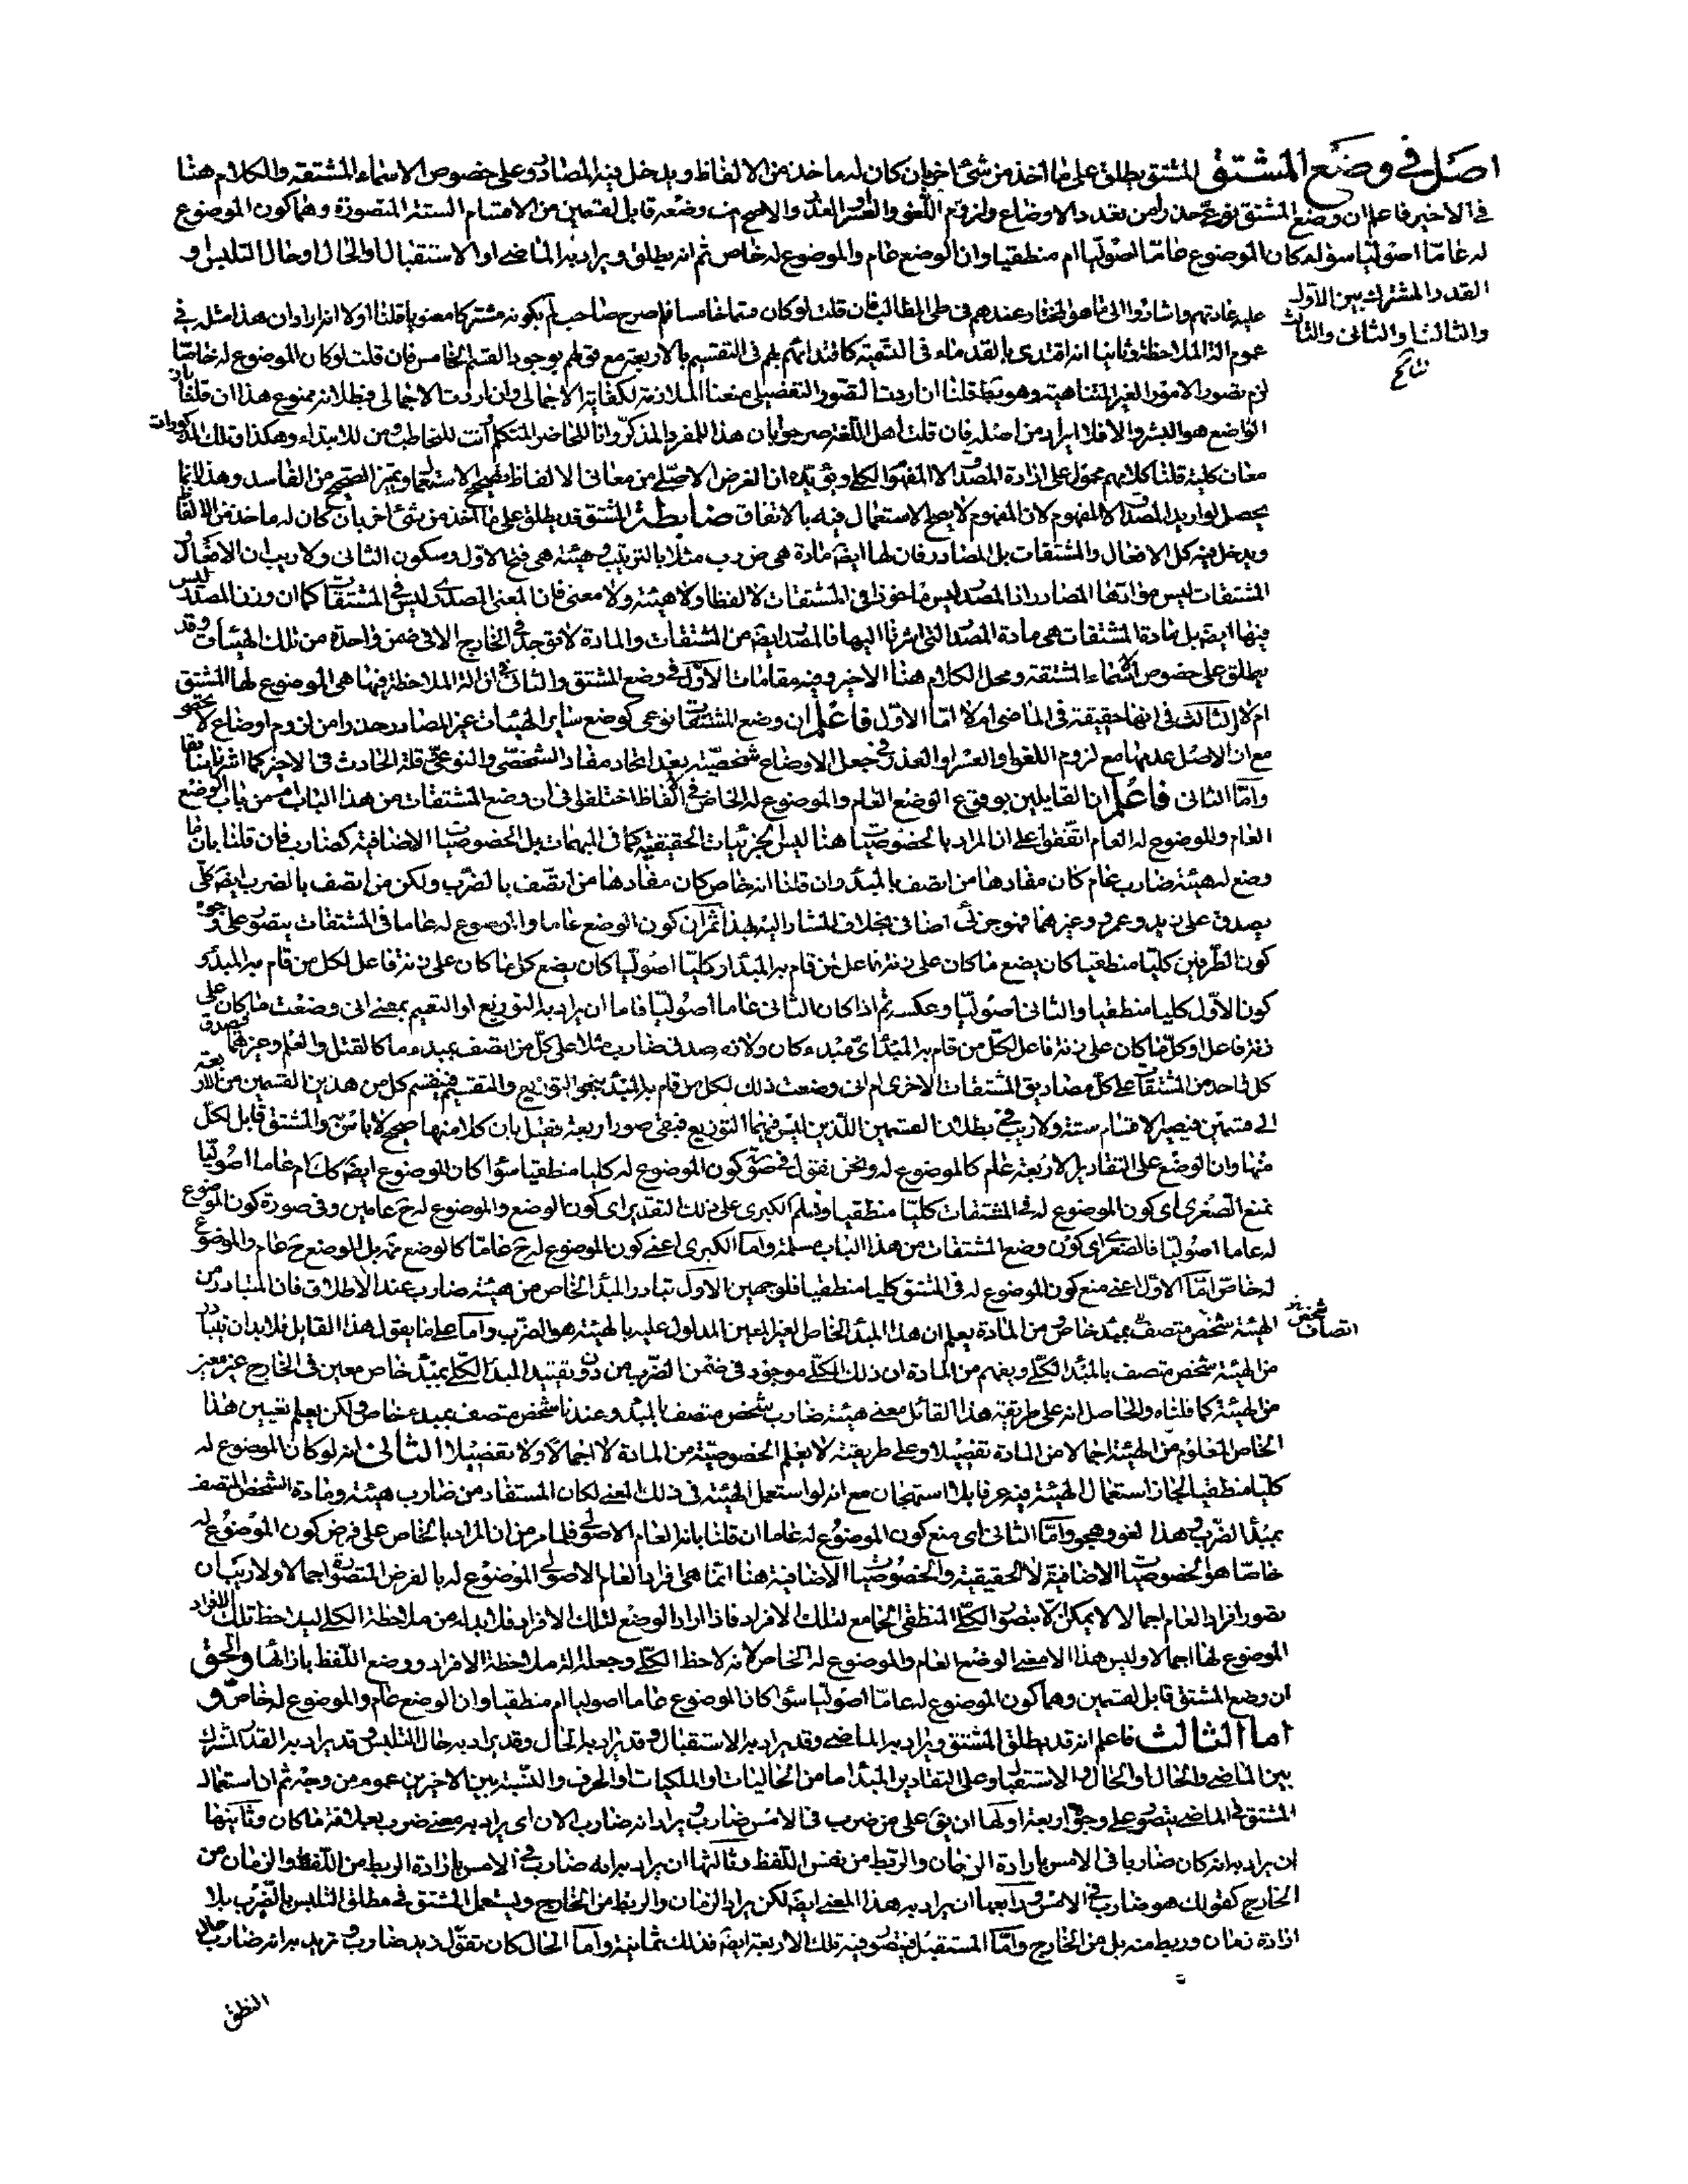 اصل في وضع المشتق المشتق يطلق على ما اخذ من شئ اخر بان كان له ماخذ من الالفاظ ويدخل فيه المصادر وعلى خصوص الاسماء المشتقة والكلام هنا
في الاخير فاعلم ان وضع المشتق نوعي حذرا من تعدد الاوضاع ولزوم اللغو والعسر والاصح وضعه قابل لقسمين من الاقسام الستة المتصورة وهما كون الموضوع
له عاما اصوليا سواء كان الموضوع عاما اصوليا ام منطقيا وان الوضع عام والموضوع له خاص ثم انه يطلق ويراد به الماضي او الاستقبال او الحال او حال التلبس و
القدر المشترك بين الاول
والثالث او الثاني والثالث
عليه عادتهم واشاروا الى ما هو المختار عندهم في طي المطالب فان قلت لو كان قسما خامسا فلم صرح صاحب لم بكونه مشتركا معنويا قلنا اولا انه اراد ان هذا مثله في
عموم الة الملاحظة وثانيا انه اقتدى بالقدماء في التسمية كاقتدائهم بهم في التقسيم بالاربعة مع قولهم بوجود القسم الخامس فان قلت لو كان الموضوع له خاصا
لزم تصور الامور الغير المتناهية وهو بط قلنا ان اردت التصور التفصيلي منعنا الملازمة لكفاية الاجمالي وان اردت الاجمالي فبطلانه ممنوع هذا ان قلنا بان
الواضع هو البشر والا فلا ايراد من اصله فان قلت اهل اللغة صرحوا بان هذا للمفرد المذكر وانا للحاضر المتكلم وانت للمخاطب ومن للابتداء وهكذا وتلك المذكورات
معان كلية قلنا كلامهم محمول على ارادة المصداق لا المفهوم الكلي ويؤيده ان الغرض الاصلي من معاني الالفاظ تصحيح الاستعمال وتميز الصحيح من الفاسد وهذا انما
يحصل لو اريد المصداق لا المفهوم لان المفهوم لا يصح الاستعمال فيه بالاتفاق ضابطة المشتق قد يطلق على ما اخذ من شئ اخر بان كان له ماخذ من الالفاظ
ويدخل فيه كل الافعال والمشتقات بل المصادر فان لها ايضا مادة هي ض رب مثلا بالترتيب وهيئة هي فتح الاول وسكون الثاني ولا ريب ان الافعال
المشتقات ليس موادها المصادر اذ المصدر ليس ماخوذا في المشتقات لا لفظا ولا هيئة ولا معنى فان المعنى المصدري ليس في المشتقات كما ان وزن المصدر ليس
فيها ايضا بل مادة المشتقات هي مادة المصدر التي اشرنا اليها فالمصدر ايضا من المشتقات والمادة لا توجد في الخارج الا في ضمن واحدة من تلك الهيئات وقد
يطلق على خصوص الاسماء المشتقة ومحل الكلام هنا الاخير وفيه مقامات الاول في وضع المشتق والثاني في ان الة الملاحظة فيها هي الموضوع لها المشتق
ام لا الثالث في انها حقيقة في الماضي ام لا اما الاول فاعلم ان وضع المشتقات نوعي كوضع ساير الهيئات غير المصادر حذرا من لزوم اوضاع لا تحصى
مع ان الاصل عدمها مع لزوم اللغو او العسر او العذر في جعل الاوضاع شخصية بعد اتحاد مفاد الشخصي والنوعي قلة الحادث في الاخير كما اشرنا سابقا
واما الثاني فاعلم ان القايلين بوقوع الوضع العام والموضوع له الخاص في الالفاظ اختلفوا في ان وضع المشتقات من هذا الباب ام من باب الوضع
العام والموضوع له العام اتفقوا على ان المراد بالخصوصيات هنا ليس الجزئيات الحقيقية كما في المبهمات بل الخصوصيات الاضافية كضارب فان قلنا بان ما
وضع له هيئة ضارب عام كان مفادها من اتصف بالمبدء وان قلنا انه خاص كان مفادها من اتصف بالضرب ولكن من اتصف بالضرب ايضا كلي
يصدق على زيد وعمرو وغيرهما فهو جزئي اضافي بخلاف المشار اليه بهذا ثم ان كون الوضع عاما والموضوع له عاما في المشتقات يتصور على وجوه
كون الطرفين كليا منطقيا كان يضع ما كان على زنة فاعل لمن قام به المبدء او كليا اصوليا كان يضع كل ما كان على زنة فاعل لكل من قام به المبدء و
كون الاول كليا منطقيا والثاني اصوليا وعكسه ثم اذا كان الثاني عاما اصوليا فاما ان يراد به التوزيع او التعميم بمعنى اني وضعت ما كان على
زنة فاعل او كل ما كان على زنة فاعل لكل من قام به المبدء اي مبدء كان ولازمه صدق ضارب مثلا على كل من اتصف بمبدء ما كالقتل والعلم وغيرهما فيصدق
كل واحد من المشتقات على كل مصاديق المشتقات الاخرى ام اني وضعت ذلك لكل من قام به المبدء بنحو التوزيع والتقسيم فينقسم كل من هذين القسمين من الاربعة
الى قسمين فيصير الاقسام ستة ولا ريب في بطلان القسمين اللذين ليس فيهما التوزيع فبقي صور اربعة فقيل بان كلا منها صحيح لا باس به والمشتق قابل لكل
منها وان الوضع على التقادير الاربعة عام كالموضوع له ونحن نقول في صورة كون الموضوع له كليا منطقيا سواء كان الموضوع ايضا كك ام عاما اصوليا
نمنع الصغرى اي كون الموضوع له في المشتقات كليا منطقيا ونسلم الكبرى على ذلك التقدير اي كون الوضع والموضوع له ح عامين وفي صورة كون الموضوع
له عاما اصوليا فالصغرى اي كون وضع المشتقات من هذا الباب مسلمة واما الكبرى اعني كون الموضوع له ح عاما كالوضع فلا بل الوضع ح عام والموضوع
له خاص اما الاول اعني منع كون الموضوع له في المشتق كليا منطقيا فلوجهين الاول تبادر المبدء الخاص من هيئة ضارب عند الاطلاق فان المتبادر من
الهيئة شخص متصف بمبدء خاص ومن المادة يعلم ان هذا المبدء الخاص الغير المعين المدلول عليه بالهيئة هو الضرب واما على ما يقول هذا القايل فلا بد ان يتبادر
من الهيئة شخص متصف بالمبدء الكلي ويفهم من المادة ان ذلك الكلي موجود في ضمن الضرب من دون تقييد المبدء الكلي بمبدء خاص معين في الخارج غير معين
من الهيئة كما قلناه والحاصل انه على طريقة هذا القائل معنى هيئة ضارب شخص متصف بالمبدء وعندنا شخص متصف بمبدء خاص ولكن يعلم تعيين هذا
الخاص المعلوم من الهيئة اجمالا من المادة تفصيلا وعلى طريقته لا يعلم الخصوصية من المادة لا اجمالا ولا تفصيلا الثاني انه لو كان الموضوع له
كليا منطقيا لجاز استعمال الهيئة فيه عرفا بلا استهجان مع انه لو استعمل الهيئة في ذلك المعنى لكان المستفاد من ضارب هيئة ومادة الشخص المتصف
بمبدء الضرب وهذا لغو وهجو واما الثاني اي منع كون الموضوع له عاما ان قلنا بانه العام الاصولي فلما مر من ان المراد بالخاص على فرض كون الموضوع له
خاصا هو الخصوصيات الاضافية لا الحقيقية والخصوصيات الاضافية هنا انما هي افراد العام الاصولي الموضوع له بالفرض المتصورة اجمالا ولا ريب ان
تصور افراد العام اجمالا لا يمكن الا بتصور الكلي المنطقي الجامع لتلك الافراد فاذا اراد الوضع لتلك الافراد فلا بد له من ملاحظة الكلي ليلاحظ تلك الافراد
الموضوع لها اجمالا وليس هذا الا معنى الوضع العام والموضوع له الخاص لانه لاحظ الكلي وجعله الة ملاحظة الافراد ووضع اللفظ بازائها والحق
ان وضع المشتق قابل لقسمين وهما كون الموضوع له عاما اصوليا سواء كان الموضوع عاما اصوليا ام منطقيا وان الوضع عام والموضوع له خاص و
اما الثالث فاعلم انه قد يطلق المشتق ويراد به الماضي وقد يراد به الاستقبال وقد يراد به الحال وقد يراد به حال التلبس وقد يراد به القدر المشترك
بين الماضي والحال او الحال والاستقبال وعلى التقادير المبدء اما من الحاليات او الملكيات او الحرف والنسبة بين الاخيرين عموم من وجه ثم ان استعمال
المشتق في الماضي يتصور على وجوه اربعة اولها ان يق على من ضرب في الامس ضارب ويراد انه ضارب الان اي يراد به معنى ضرب بعلاقة ما كان وثانيها
ان يراد به انه كان ضاربا في الامس بارادة الزمان والربط من نفس اللفظ وثالثها ان يراد به انه ضارب في الامس بارادة الربط من اللفظ والزمان من
الخارج كقولك هو ضارب في الامس ورابعها ان يراد به هذا المعنى ايضا لكن يراد الزمان والربط من الخارج ويستعمل المشتق في مطلق التلبس بالضرب بلا
ارادة زمان وربط منه بل من الخارج واما المستقبل فيتصور فيه تلك الاربعة ايضا فذلك ثمانية واما الحال كان تقول زيد ضارب وتريد به انه ضارب حال
النطق